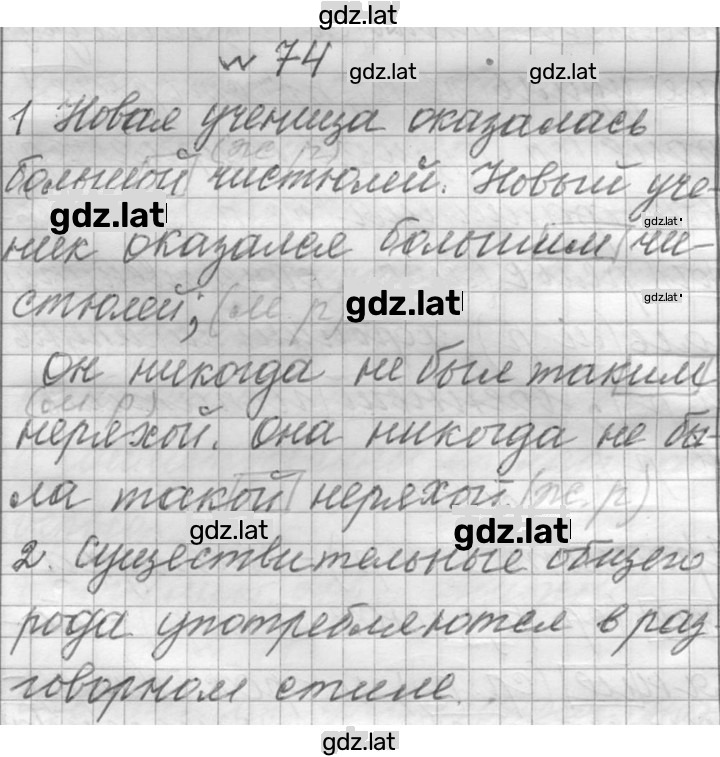 gdz.lat
№ 74
gdz.lat gdz.lat
1 Новая ученица оказалась
большой (ж. р) чистюлей. Новый уче-
gdz.lat gdz.lat
ник оказался большим чи-
стюлей; (м. р)
gdz.lat gdz.lat
Он никогда не был таким
(м. р)
неряхой. Она никогда не бы-
ла такой неряхой. (ж. р)
gdz.lat gdz.lat
2. Существительные общего
рода употребляются в раз-
говорном стиле.
gdz.lat